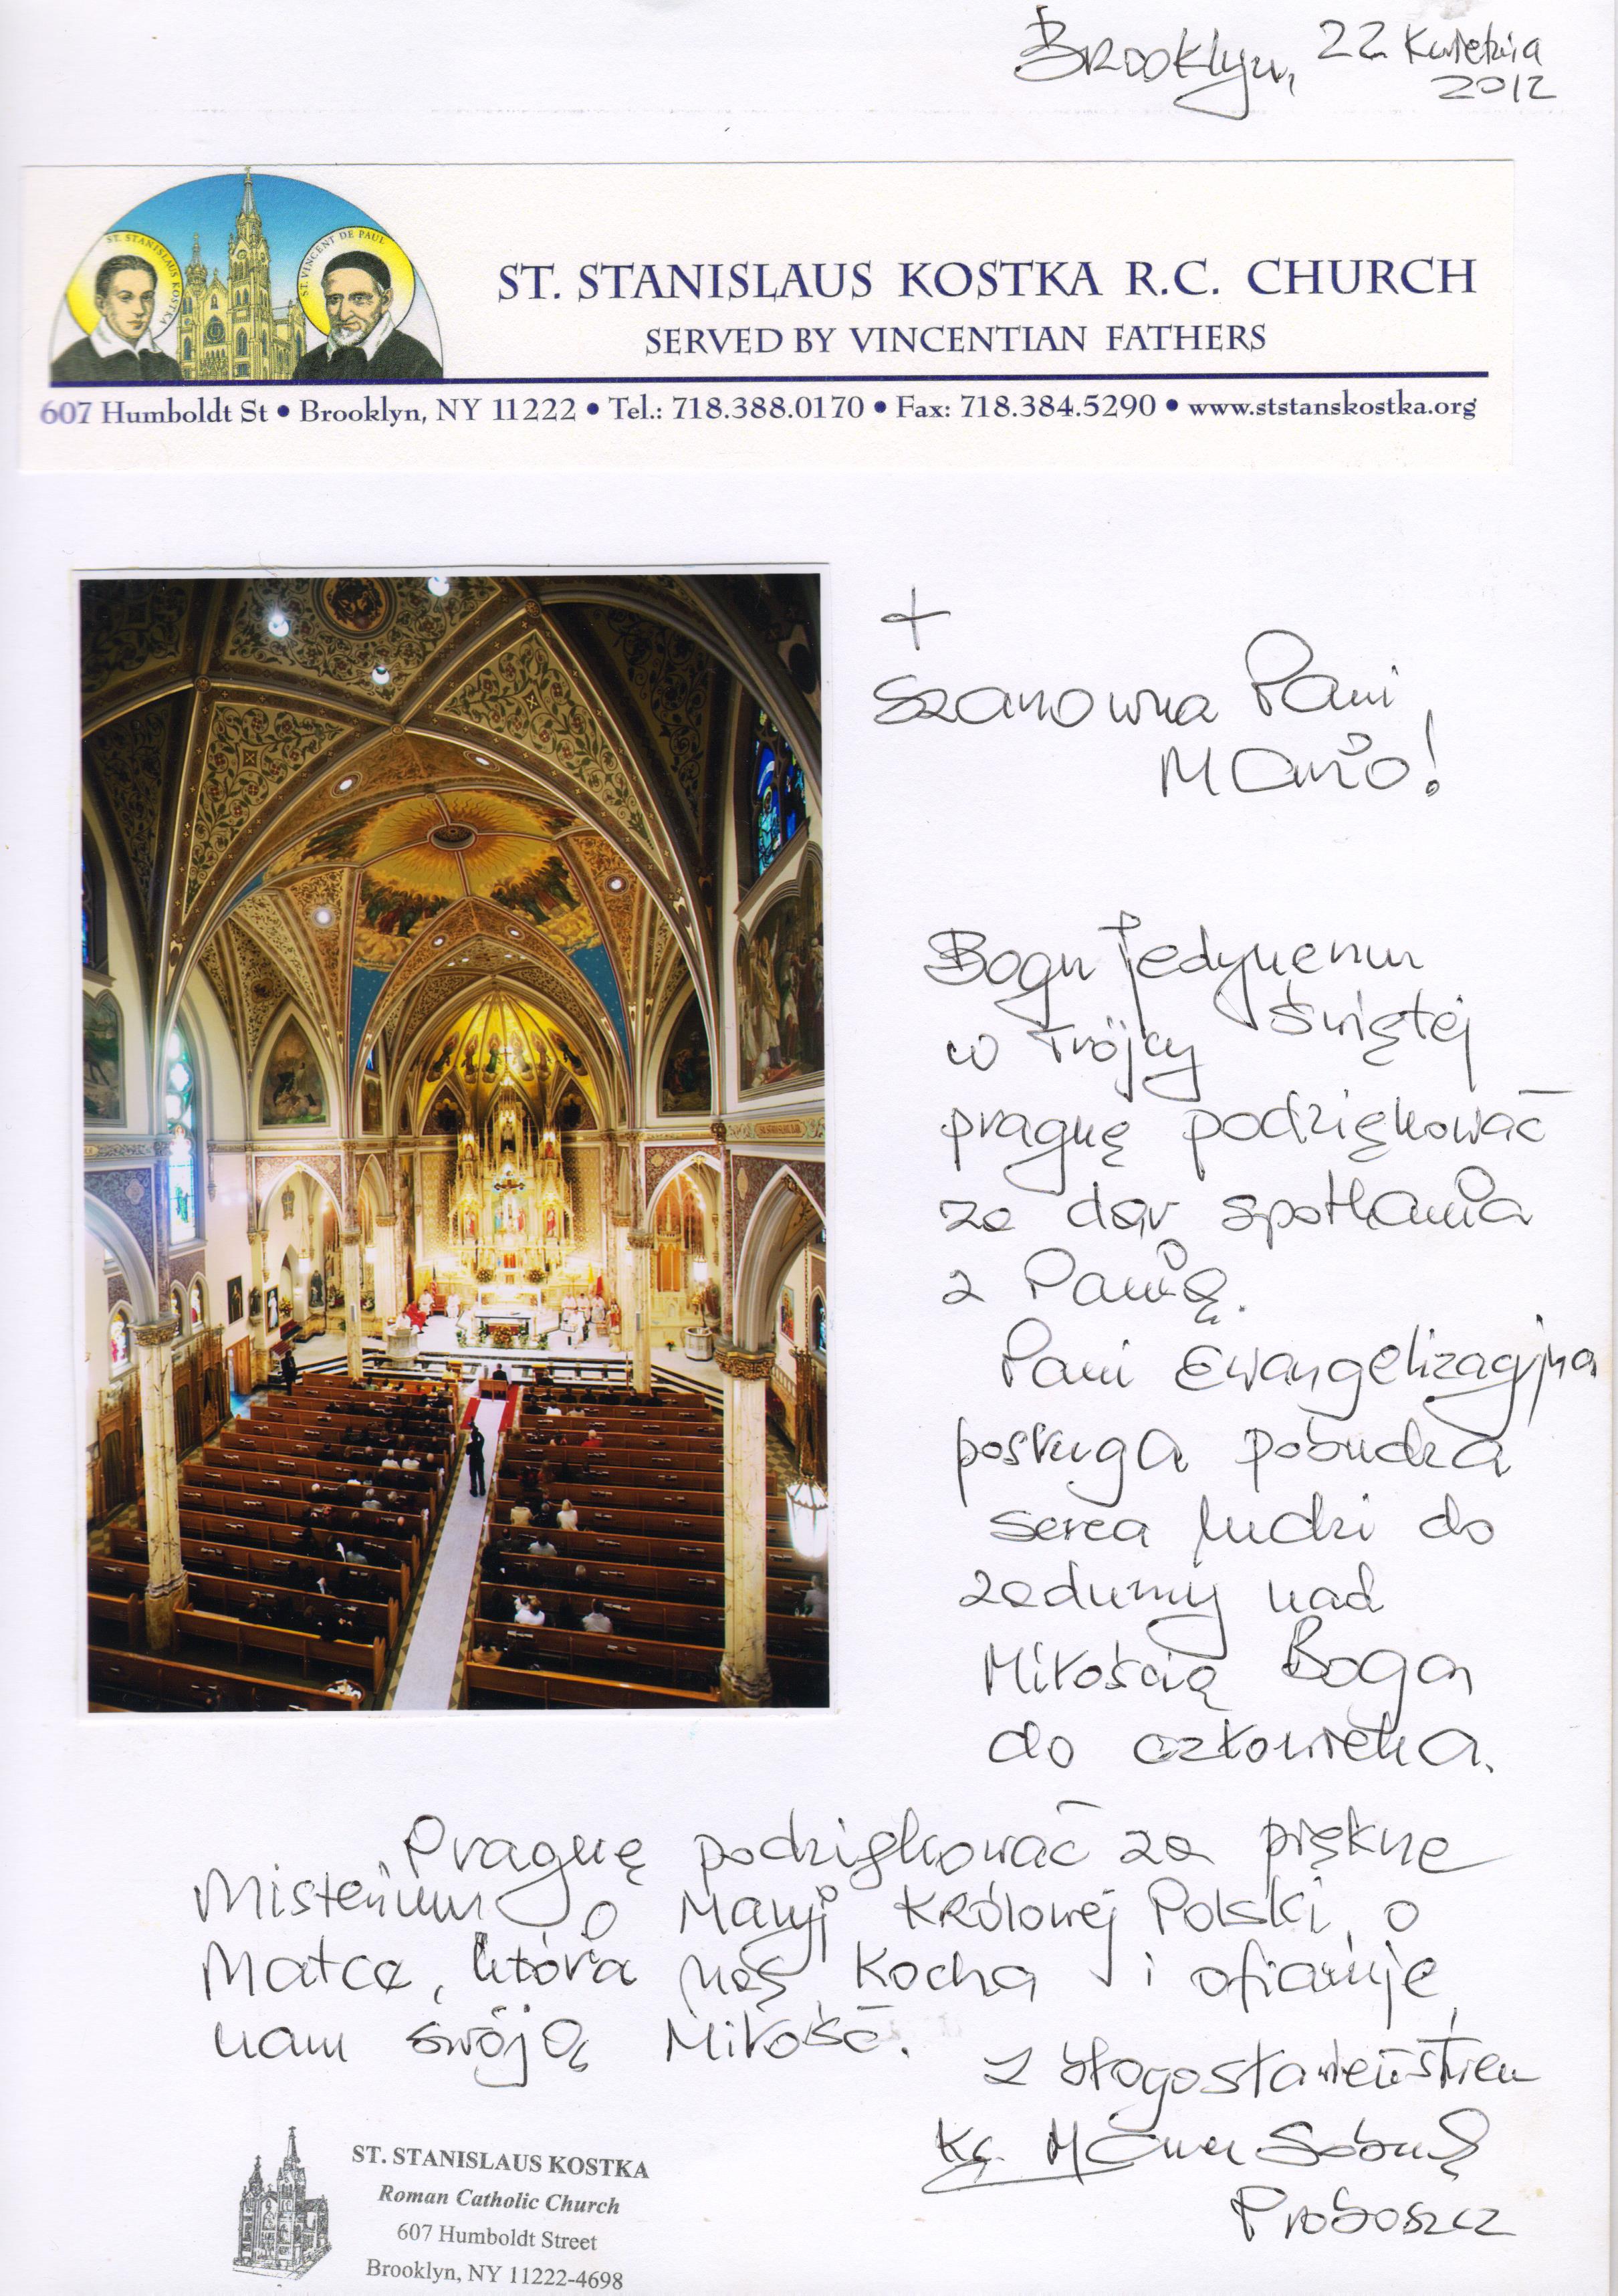 Brooklyn, 22 Kwietnia
2012
ST. STANISLAUS KOSTKA
ST. VINCENT DE PAUL
ST. STANISLAUS KOSTKA R.C. CHURCH
SERVED BY VINCENTIAN FATHERS
607 Humboldt St • Brooklyn, NY 11222 • Tel.: 718.388.0170 • Fax: 718.384.5290 • www.ststanskostka.org
+
Szanowna Pani
Mario!
Bogu Jedynemu
w Trójcy Świętej
pragnę podziękować
za dar spotkania
z Panią.
Pani Ewangelizacyjna
posługa pobudza
serca ludzi do
zadumy nad
Miłością Boga
do człowieka.
Pragnę podziękować za piękne
Misterium o Maryi Królowej Polski, o
Matce, która nas kocha i ofiaruje
nam swoją Miłość.
Z błogosławieństwem
Ks. Marek
Proboszcz
ST. STANISLAUS KOSTKA
Roman Catholic Church
607 Humboldt Street
Brooklyn, NY 11222-4698